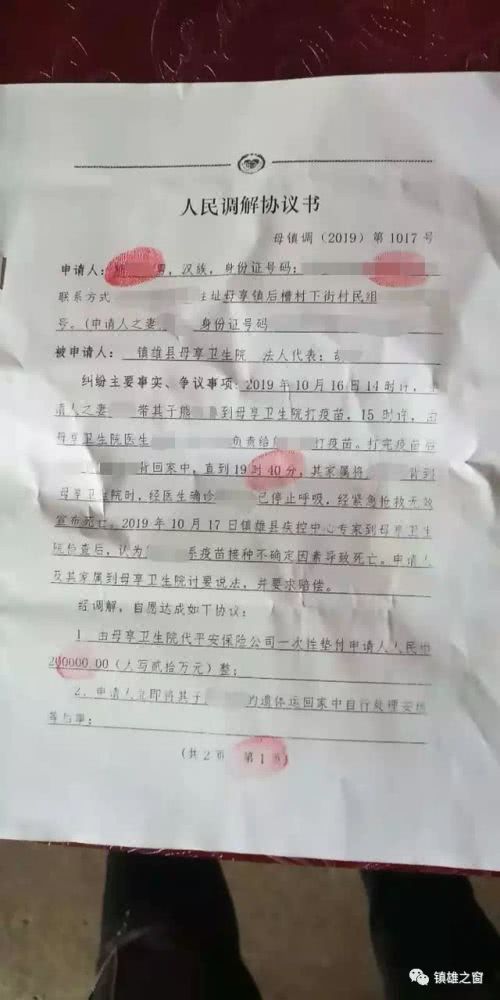 人民调解协议书
母镇调（2019）第1017号
申请人： 男，汉族，身份证号码：
联系方式 主址母享镇后槽村下街村民组
号。（申请人之妻 身份证号码
被申请人： 镇雄县母享卫生院 法人代表：
纠纷主要事实、争议事项：2019年10月16日14时许，
请人之妻 带其子 到母享卫生院打疫苗，15时许，由
母享卫生院医生 负责给 打疫苗。打完疫苗后
背回家中，直到19时40分，其家属将 背到
母享卫生院时，经医生确诊 已停止呼吸，经紧急抢救无效
宣布死亡。2019年10月17日镇雄县疾控中心专家到母享卫生
院检查后，认为 系疫苗接种不确定因素导致死亡。申请人
及其家属到母享卫生院讨要说法，并要求赔偿。
经调解，自愿达成如下协议：
1、由母享卫生院代平安保险公司一次性垫付申请人人民币
200000.00（大写贰拾万元）整；
2、申请人立即将其子 的遗体运回家中自行处理安埋
等与事；
（共2页 第1页）
镇雄之窗